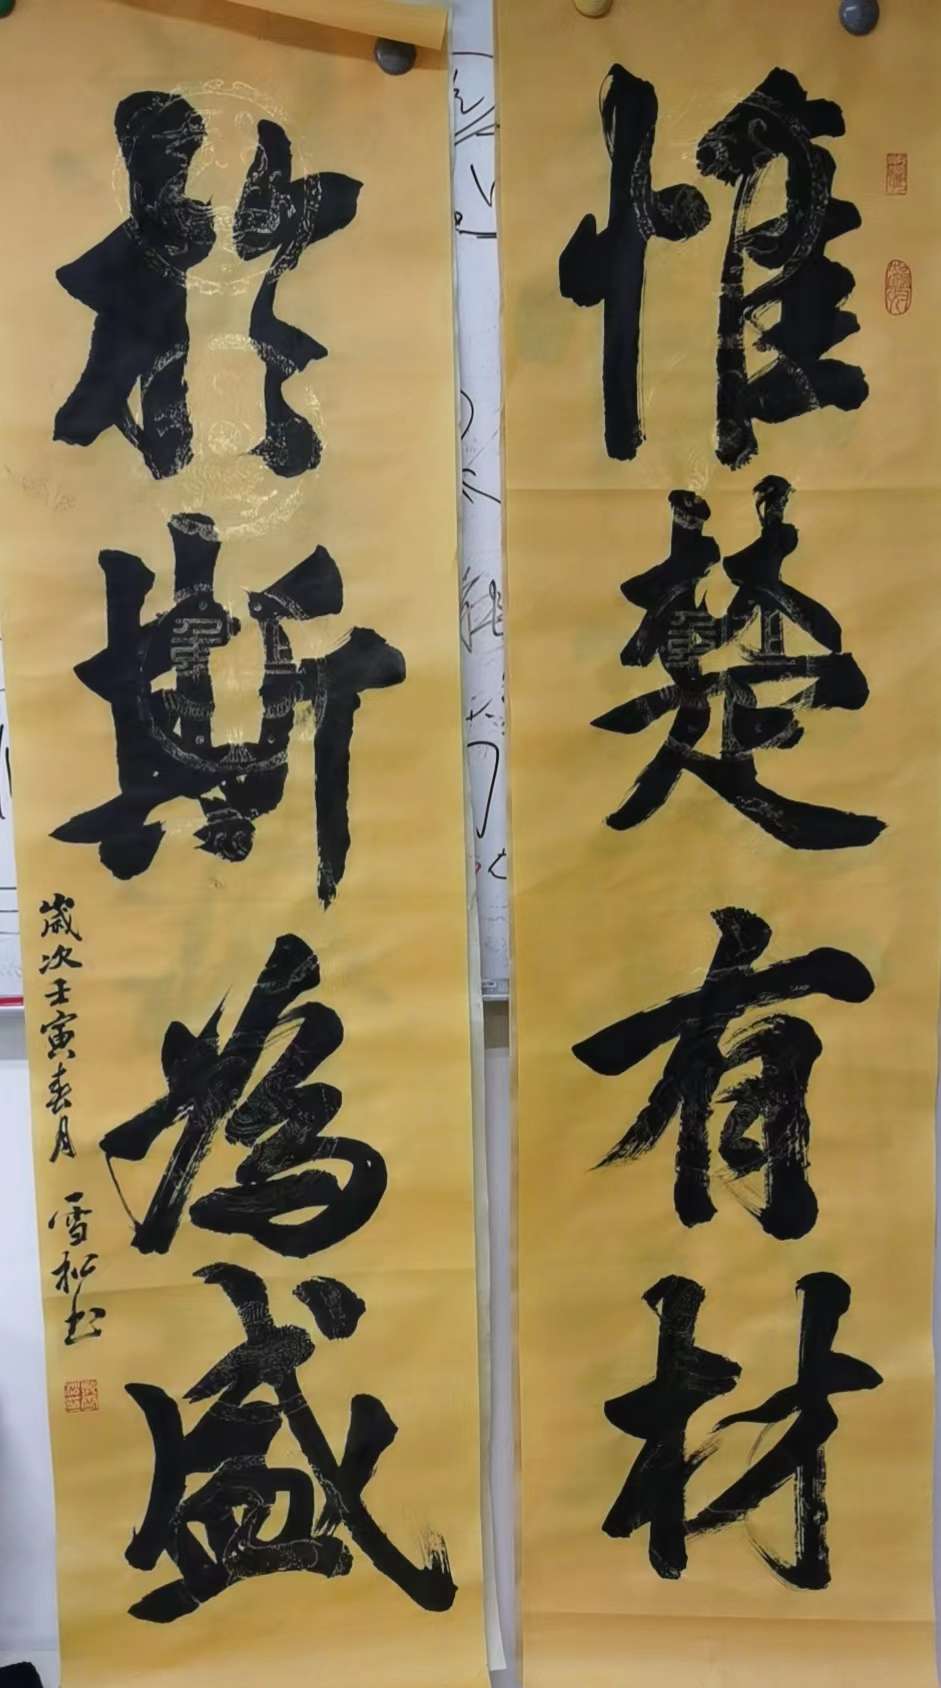 惟楚有材
於斯為盛
歲次壬寅春月 雪松书